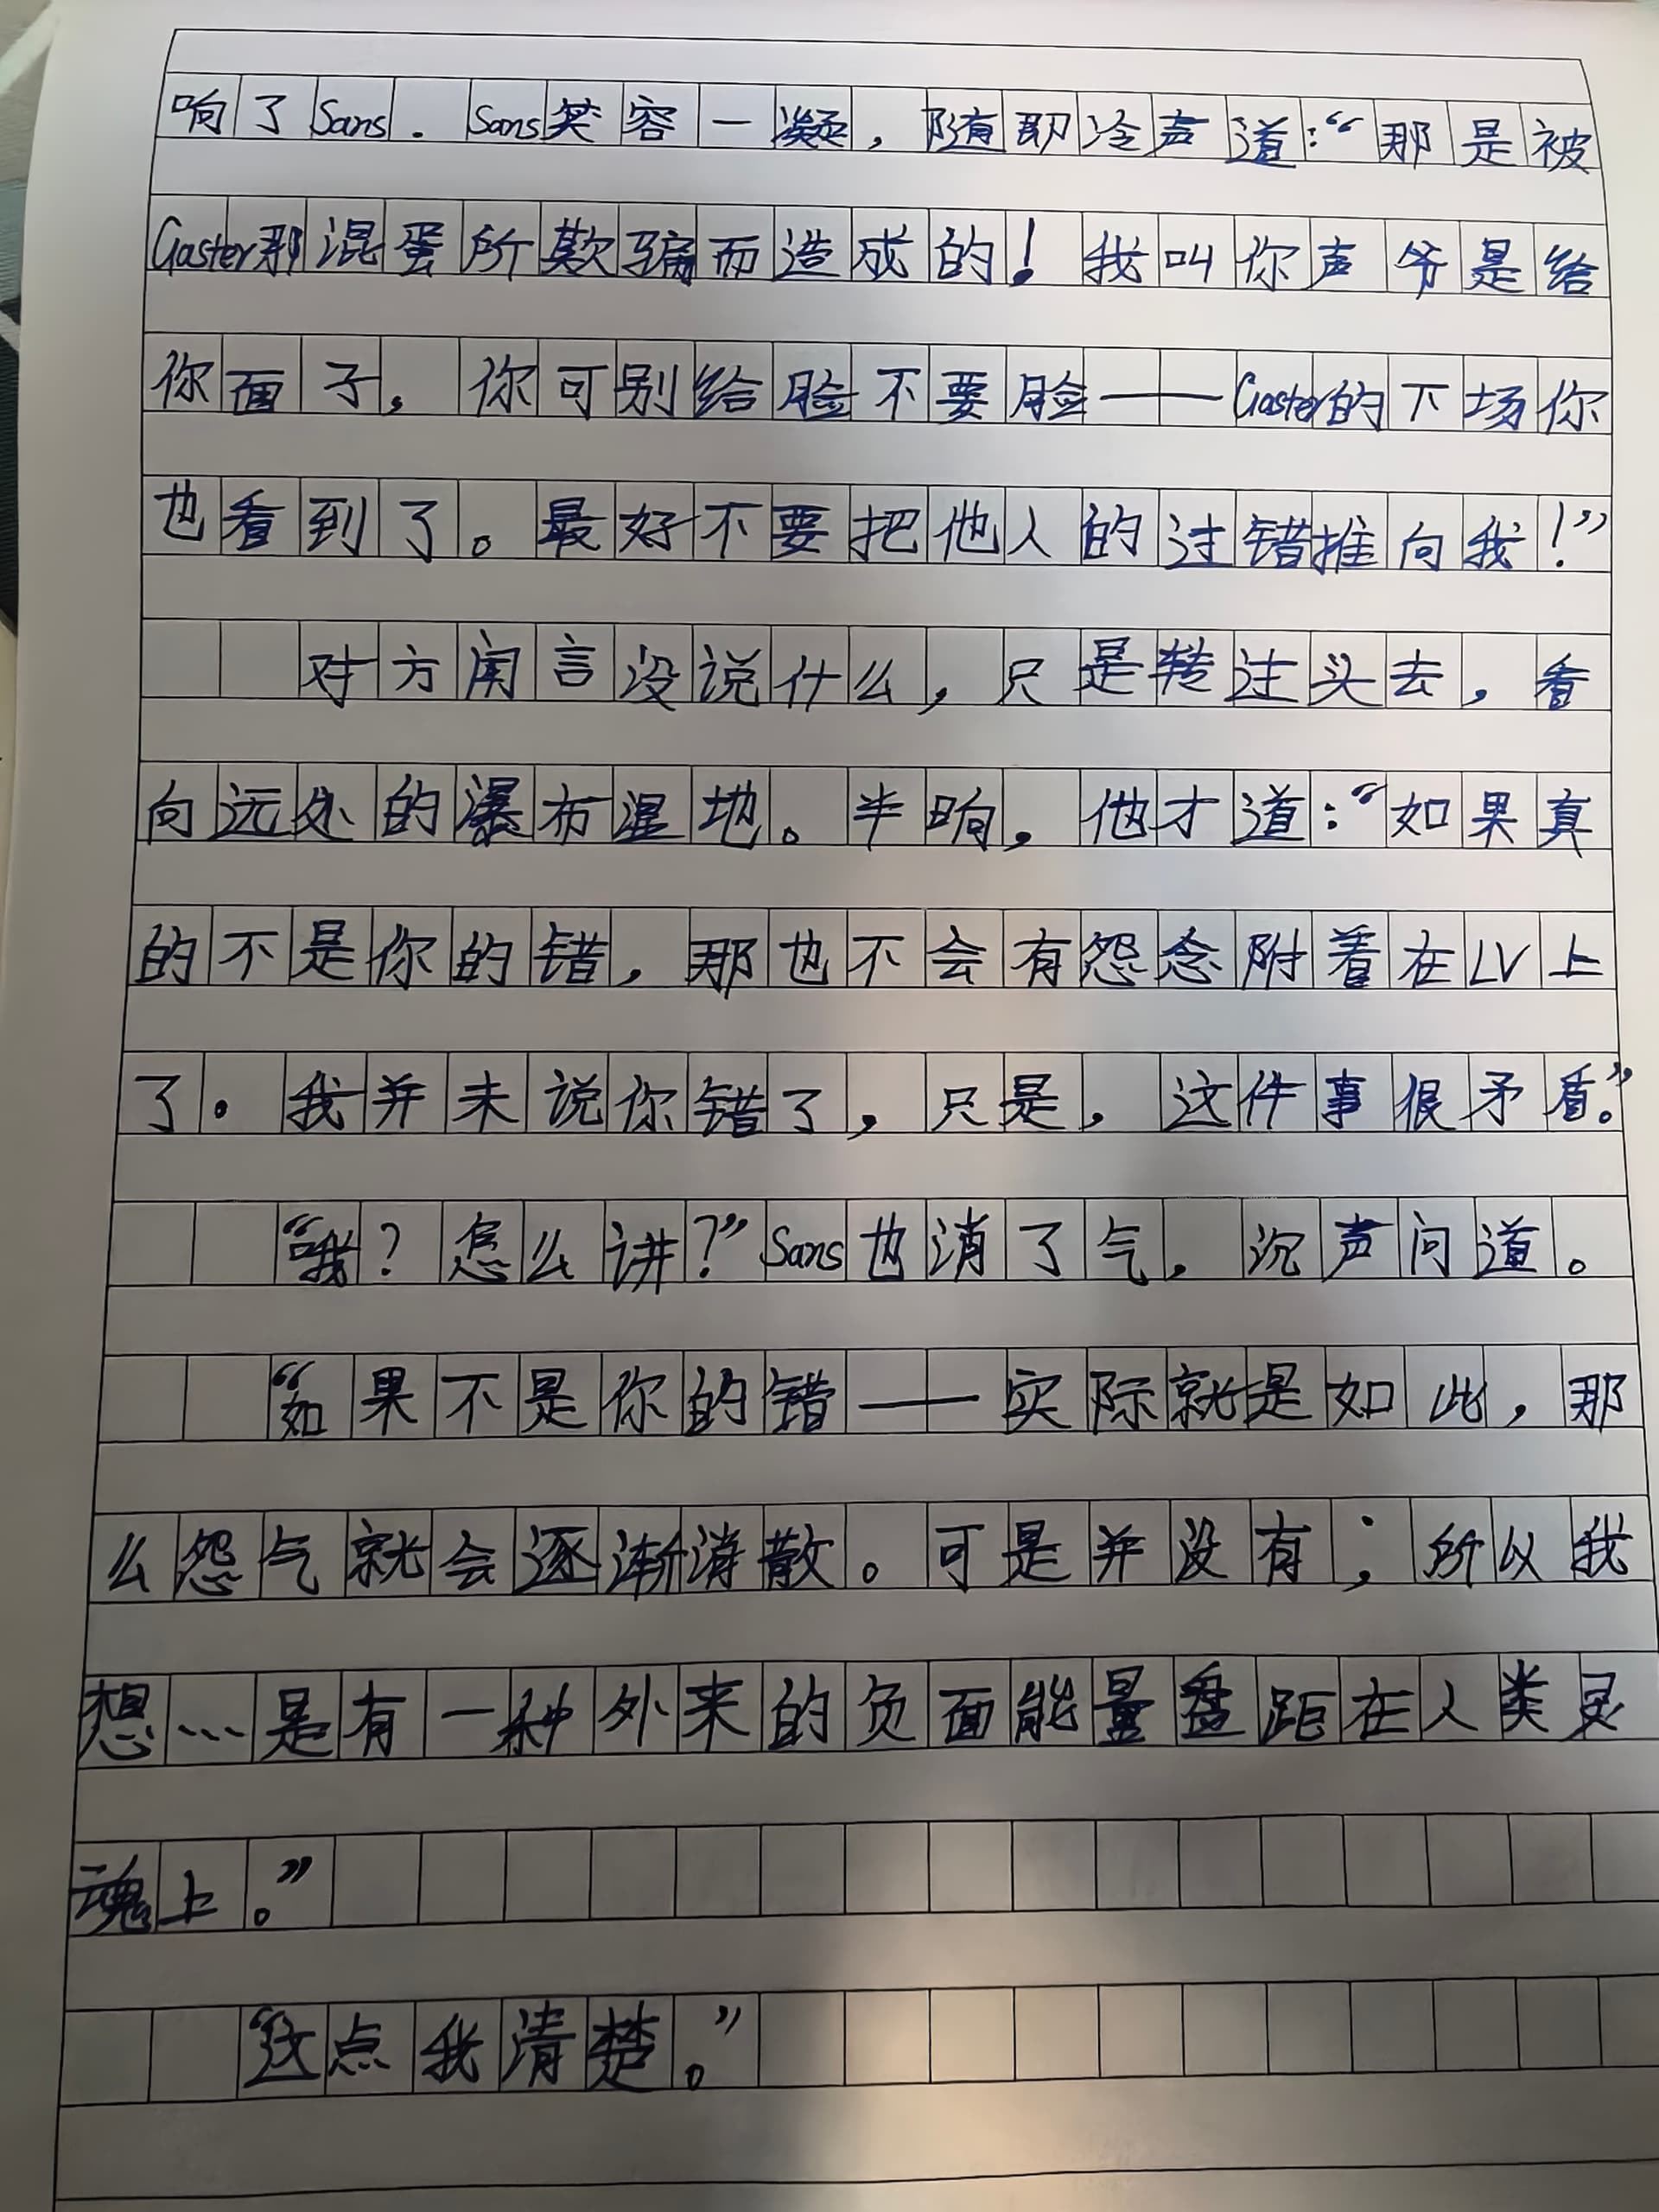 响了Sans. Sans笑容一凝，随即冷声道：“那是被
Gaster那混蛋所欺骗而造成的！我叫你声爷是给
你面子，你可别给脸不要脸——Gaster的下场你
也看到了。最好不要把他人的过错推向我！”
对方闻言没说什么，只是转过头去，看
向远处的瀑布湿地。半晌，他才道：“如果真
的不是你的错，那也不会有怨念附着在LV上
了。我并未说你错了，只是，这件事很矛盾。”
“哦？怎么讲？”Sans也消了气，沉声问道。
“如果不是你的错——实际就是如此，那
么怨气就会逐渐消散。可是并没有；所以我
想…是有一种外来的负面能量盘距在人类灵
魂上。”
“这点我清楚。”